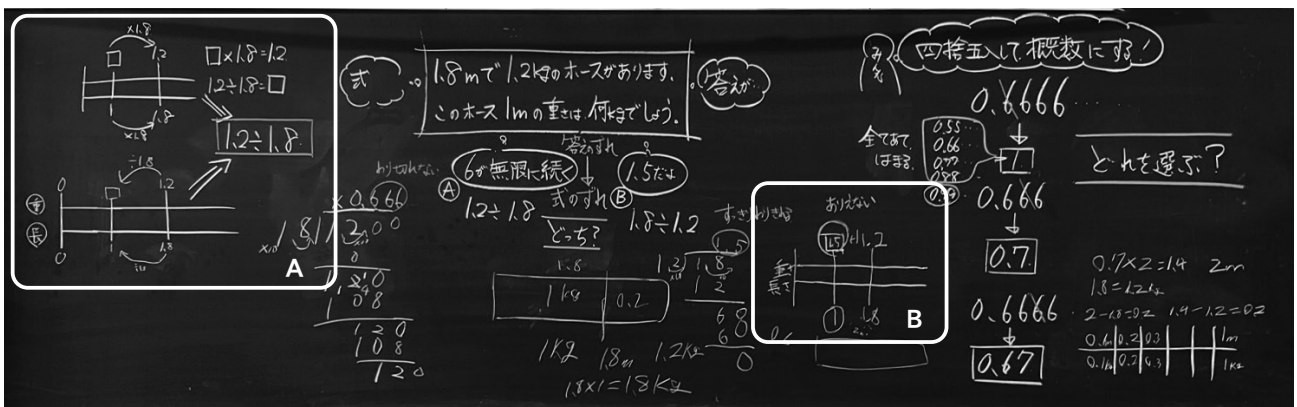 ×1.8
1.2
□×1.8=1.2
1.2÷1.8=□
1.8
×1.8
1.2÷1.8
÷1.8
0
1.2
重
長
0
1
1.8
÷1.8
A
式
1.8mで1.2kgのホースがあります。
このホース1mの重さは何kgでしょう。
答えが
答えのずれ
わり切れない
6が無限に続く
1.5だよ
A
式のずれ
B
1.2÷1.8
どっち?
1.8÷1.2
0.666
1.8
1
0
108
120
108
120
1.8
1kg
0.2
1kg
1.8m
1.2kg
1.8×1=1.8kg
すっきりわりきれる
1.5
1.2
1.8
12
60
60
0
ありえない
1.5
1.2
重さ
長さ
1
1.8
B
四捨五入して概数にする!
0.6666……
全てあて
はまる
0.55…
0.66
0.77
0.88
0.99
1
0.666
0.7
0.6666
0.67
どれを選ぶ?
0.7×2=1.4
2m
1.8=1.2kg
2-1.8=0.2
1.4-1.2=0.2
0.1m
0.2
0.3
1m
0.1kg
0.2
0.3
1kg